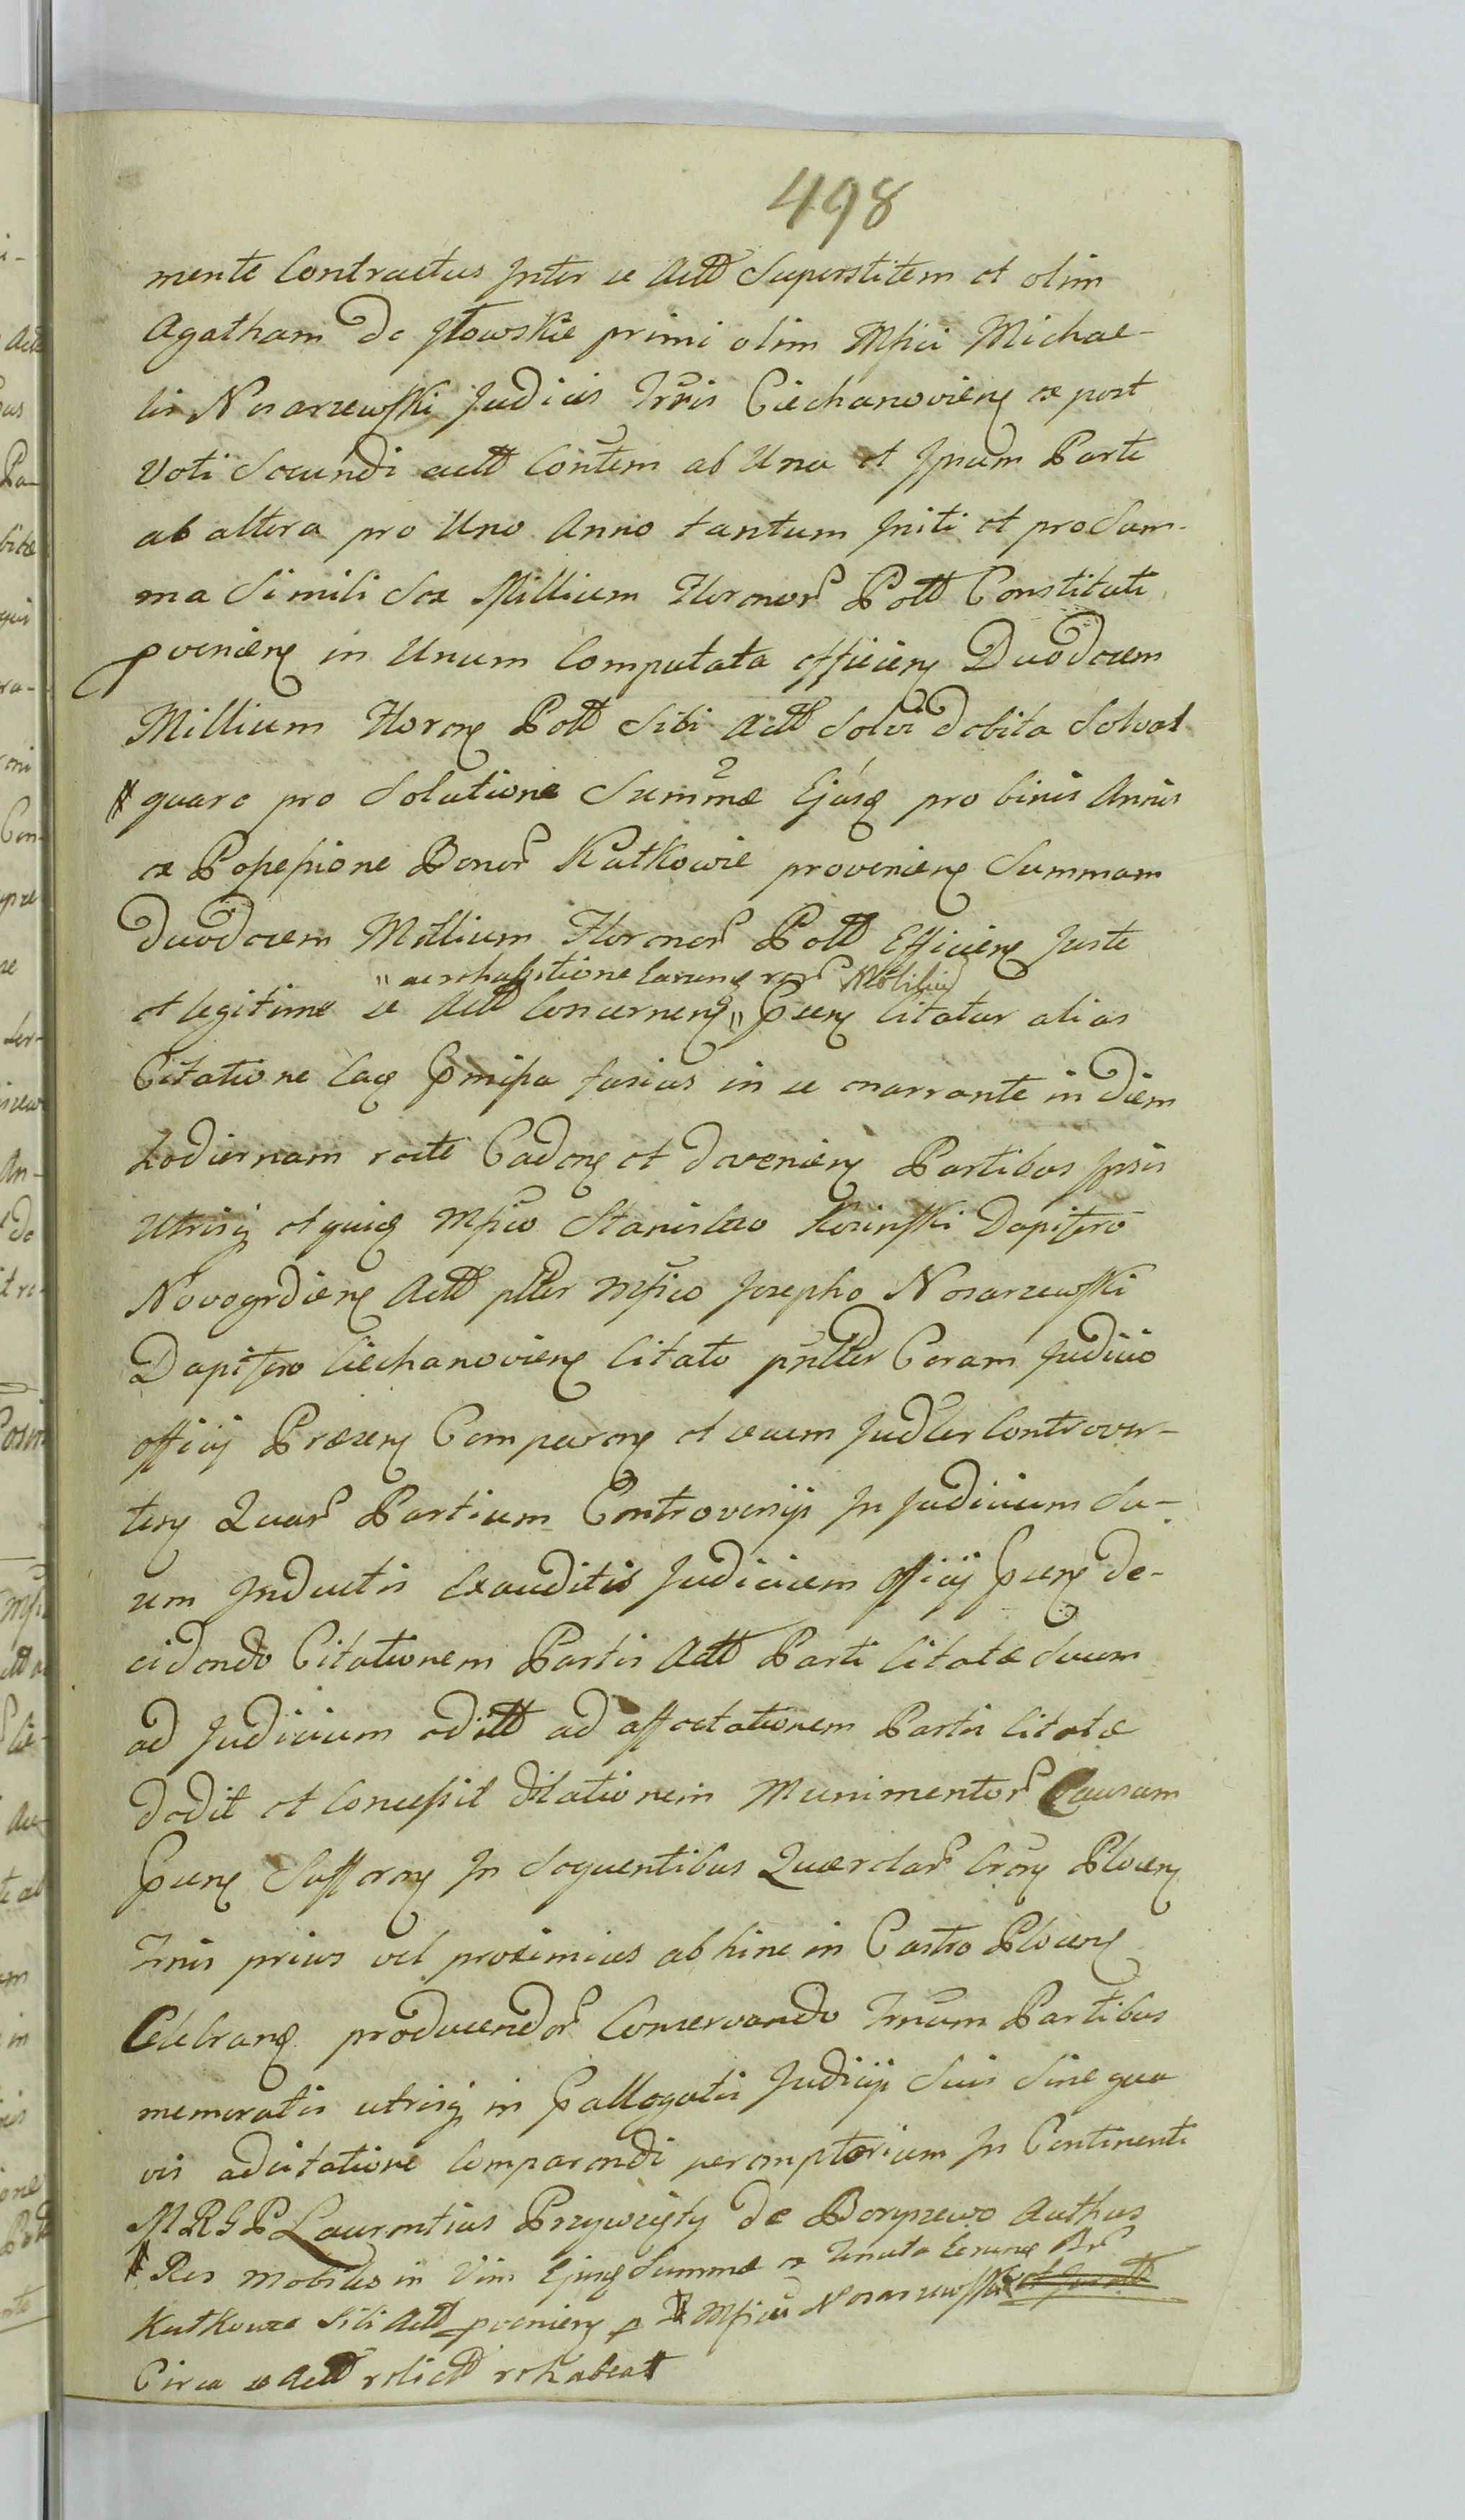 498
mente Contractus Inter se Actt Superstitem et olim
Agatham de Iłowskie primi olim Mfici Michae-
lis Nosarzewski Judicis Trris Ciechanovien̄ ex post
Voti Secundi actt Conttem ab Una et Ipsum Parte
ab altera pro Uno Anno tantum Initi et pro Sum-
ma Simili Sex Millium Florenor Poll Constituti
pvenien̄ in Unum Computata efficien̄ Duodecem
Millium Floren̄ Poll Sibi Actt Solvi debita Solvat
quare pro Solutione Summæ Ejusq pro binis Annis
ex Possessione Bonor Kutkowie provenien̄ Summam
Duodecem Millium Florenor Poll Efficien̄ Juste
ac rehabitione earunq rer Mobilium
et legitime se Actt Concernen̄ Psen̄ Citatur alias
Citatione eaq Pmissa fusius in se enarrante in diem
hodiernam recte Caden̄ et devenien̄ Partibus Ipsis
Utrisq et quidq Mfico Stanislao Kosinski Dapifero
Novogrdien̄ Actt plter Mfico Josepho Nosarzewski
Dapifero Ciechanovien̄ Citato pnlter Coram Judicio
officij Præsen̄ Comparen̄ et secum Judler Controver-
ten̄ Quar Partium Controversijs In Judicium Su-
um Inductis Exauditis Judicium officij Psen̄ de-
cidendo Citationem Partis Actt Parti Citatæ Suum
ad Judicium editt ad affectationem Partis Citatæ
dedit et Concessit dilationem Munimentor Causam
Psen̄ Sufferen̄ In Sequentibus Querelar Cren̄ Plocen̄
Trnis prius vel proximius abhinc in Castro Plocen̄
Celebran̄ producendor Conservando Trnum Partibus
memoratis utrisq in Pallegatis Judicijs Suis Sine qua
vis adcitatione Comparendi peremptorium In Continenti
M R G P Laurentius Przywizty de Boryszewo Authus
Res mobiles in Vim Ejusq Summæ ex Tenuta earunq Br
Kutkowze Sibi Actt pvenien̄ p Mficum Nosarzewski
Circa se Actt relictt rehabeat